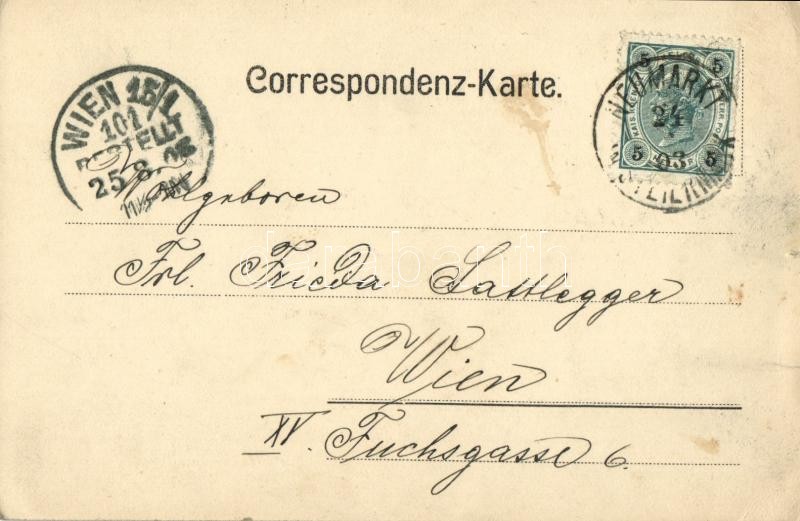 Correspondenz-Karte.
WIEN 15/1
101
BESTELLT
25 8 03
NEUMARKT
24
03
STEIERMARK
5 5
5 5
Wohlgeboren
Frl. Frieda Sattlegger
Wien
XV. Fuchsgasse 6.
darabanth